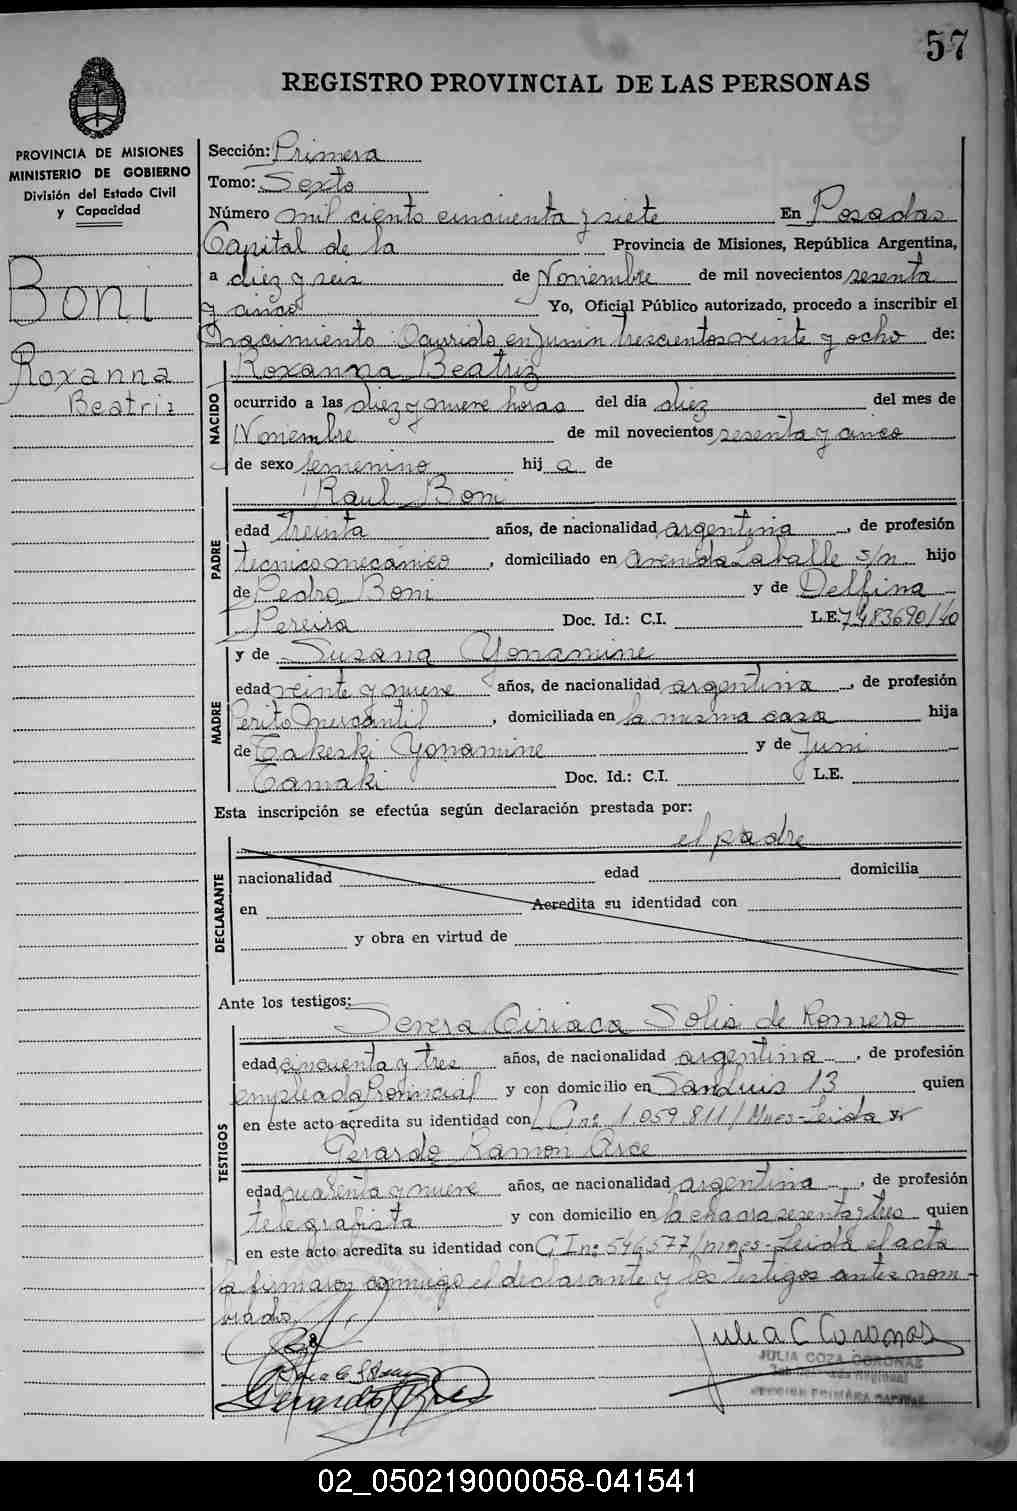 57
REGISTRO PROVINCIAL DE LAS PERSONAS
PROVINCIA DE MISIONES
MINISTERIO DE GOBIERNO
División del Estado Civil
y Capacidad
Boni
Roxanna
Beatriz
Sección: Primera
Tomo: Sexto
Número mil ciento cincuenta y siete En Posadas
Capital de la Provincia de Misiones, República Argentina,
a diez y seis de Noviembre de mil novecientos sesenta
y cinco Yo, Oficial Público autorizado, procedo a inscribir el
Nacimiento Ocurrido en Junin trescientos veinte y ocho de:
NACIDO
Roxanna Beatriz
ocurrido a las diez y nueve horas del día diez del mes de
Noviembre de mil novecientos sesenta y cinco
de sexo femenino hij a de
PADRE
Raul Boni
edad treinta años, de nacionalidad argentina, de profesión
tecnico mecánico, domiciliado en Avenida Lavalle s/n. hijo
de Pedro Boni y de Delfina
Pereira Doc. Id.: C.I. L.E. 7483690/40
MADRE
y de Susana Yonamine
edad veinte y nueve años, de nacionalidad argentina, de profesión
Perito Mercantil, domiciliada en la misma casa hija
de Takeski Yonamine y de Juni
Tamaki Doc. Id.: C.I. L.E.
Esta inscripción se efectúa según declaración prestada por:
el padre
DECLARANTE
nacionalidad edad domicilia
en Acredita su identidad con
y obra en virtud de
Ante los testigos:
TESTIGOS
Ciriaca Solis de Romero
edad cincuenta y tres años, de nacionalidad argentina, de profesión
empleada Provincial y con domicilio en San Luis 13 quien
en éste acto acredita su identidad con 1.059.811/Mnes-Leida y
Gerardo Ramon Arce
edad cuarenta y nueve años, de nacionalidad argentina, de profesión
telegrafista y con domicilio en la chacra sesenta y tres quien
en este acto acredita su identidad con C I nº 546577/mnes-Leida el acta
la firmaron conmigo el declarante y los testigos antes nom-
brados.
Julia C Coronas
JULIA COZA CORONAS
Gerardo R Arce
02_050219000058-041541